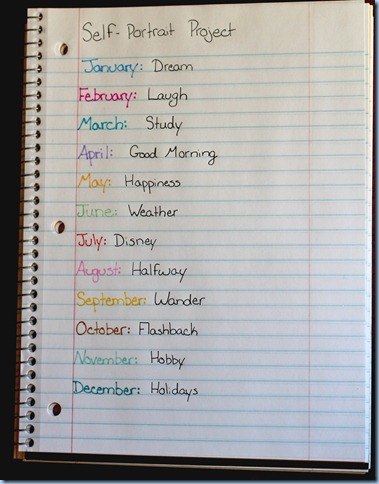 Self-Portrait Project
January: Dream
February: Laugh
March: Study
April: Good Morning
May: Happiness
June: Weather
July: Disney
August: Halfway
September: Wander
October: Flashback
November: Hobby
December: Holidays